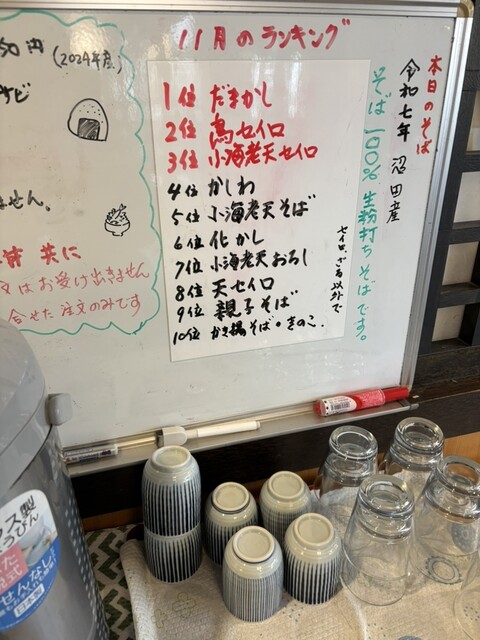 11月のランキング
1位 だまかし
2位 鳥セイロ
3位 小海老天セイロ
4位 かしわ
5位 小海老天そば
6位 化かし
7位 小海老天おろし
8位 天セイロ
9位 親子そば
10位 かき揚そば・きのこ。
セイロ、ざる以外で
本日のそば
令和七年 沼田産
そば 一〇〇% 生粉打ちそばです。
50円 (2024年度)
ません。
共に
はお受け出来ません
合せた注文のみです
ス製
うびん
せんなし
日本製